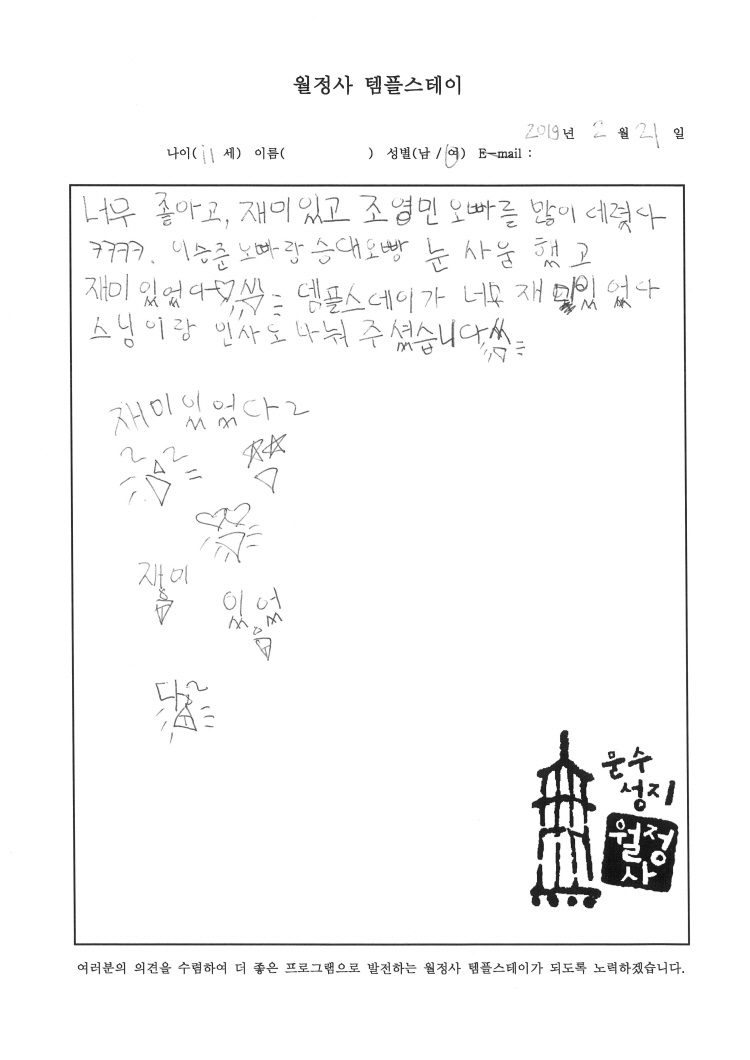 월정사 템플스테이
2019년 2월 21일
나이(11세) 이름( ) 성별(남/여) E-mail :
너무 좋아고, 재미있고 조영민오빠를 많이 데렸다
ㅋㅋㅋㅋ. 이승준오빠랑 승대오빵 눈사움 했고
재미있었다♡ 템플스데이가 너무 재미있었다
스님이랑 인사도 나눠 주셨습니다
재미있었다~
재미
있었
다~
문수
성지
월정
사
여러분의 의견을 수렴하여 더 좋은 프로그램으로 발전하는 월정사 템플스테이가 되도록 노력하겠습니다.